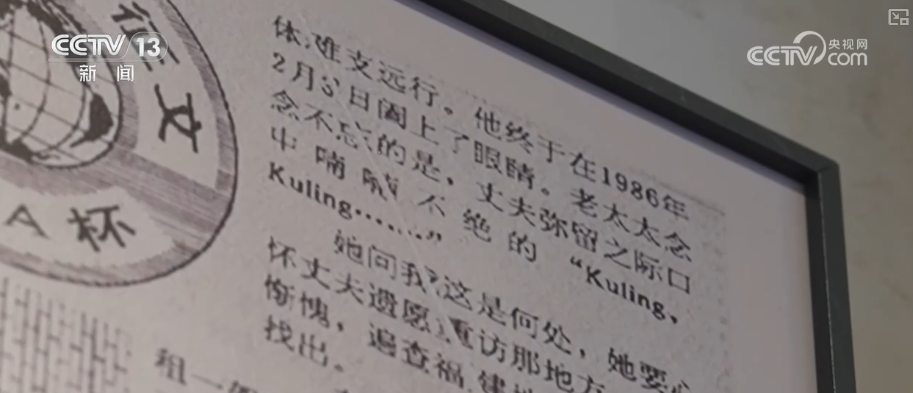 CCTV 13
新闻
CCTV 央视网
com
征文
A杯
体难支远行。他终于在1986年
2月3日阖上了眼睛。老太太念
念不忘的是，丈夫弥留之际口
中喃喃不绝的“Kuling，
Kuling……”
她问我这是何处，她要心
怀丈夫遗愿重访那地方
惭愧，遍查福建地
找出。
祖一